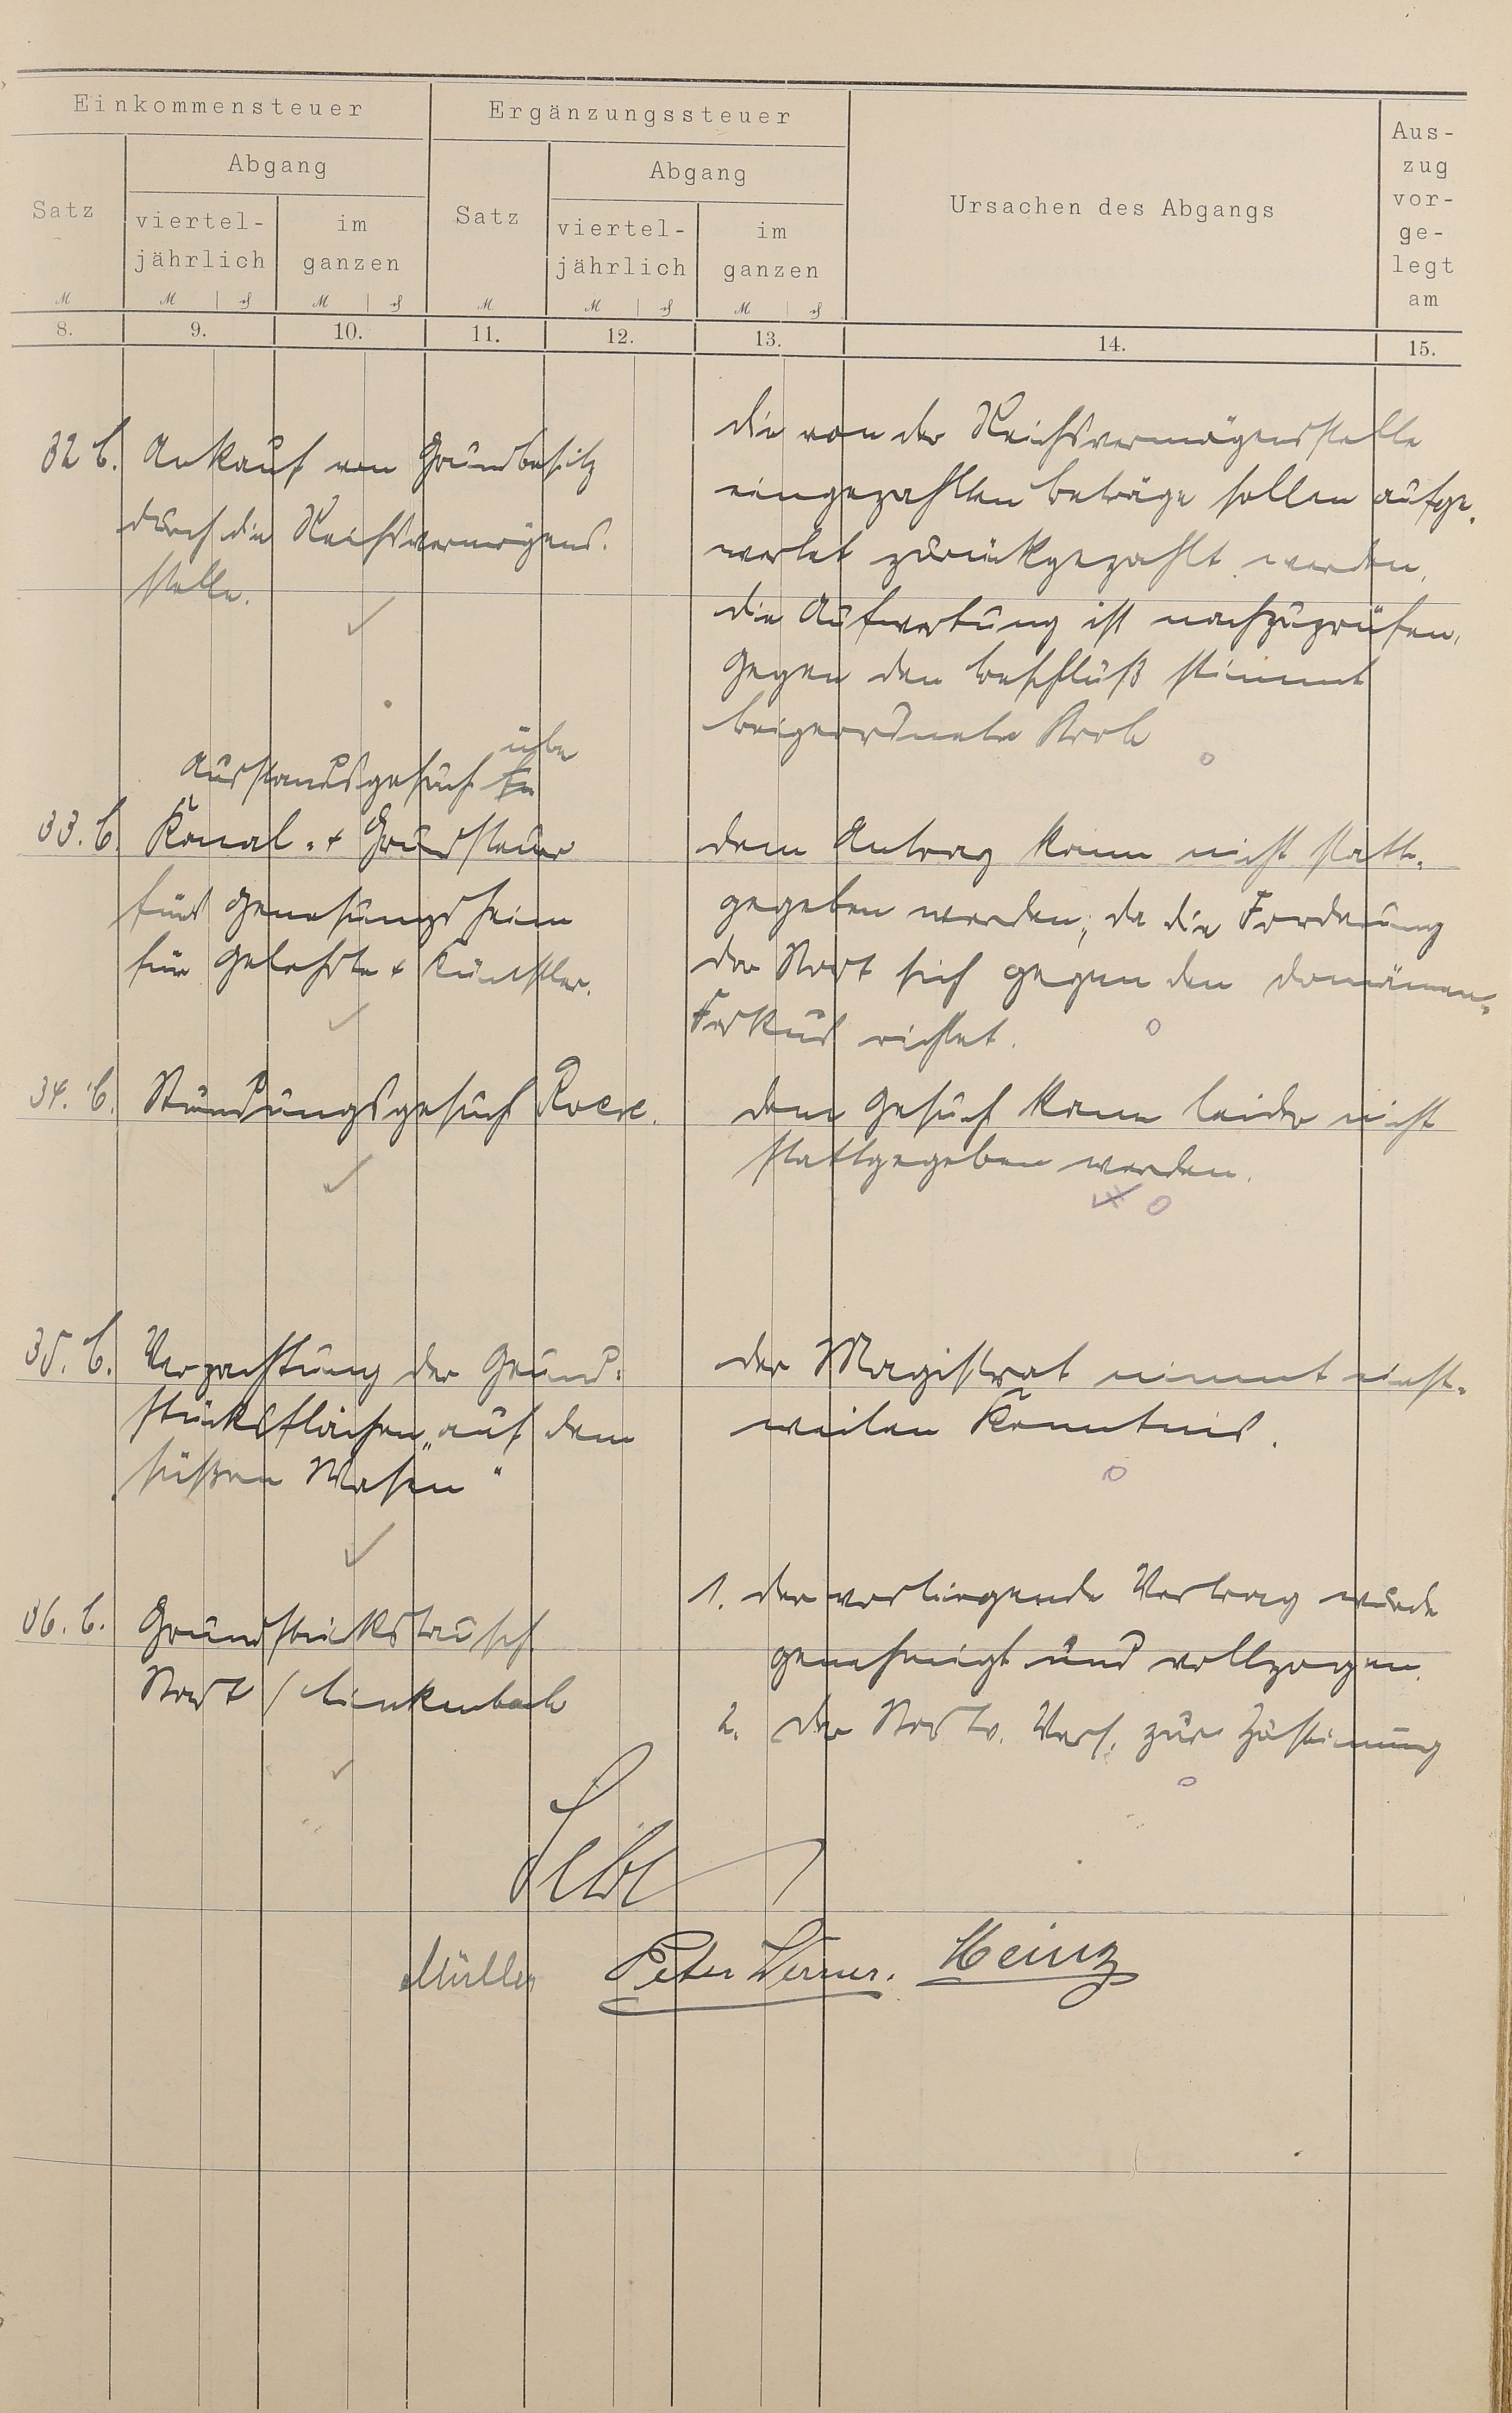 Einkommensteuer
Ergänzungssteuer
Ursachen des Abgangs
Aus-
zug
vor-
ge-
legt
am
Satz
Abgang
viertel-
jährlich
im
ganzen
Satz
Abgang
viertel-
jährlich
im
ganzen
M
M
M
M
M
M
8.
9.
10.
11.
12.
13.
14.
15.
32 b.
Ankauf von Grundbesitz
durch die Reichsvermögens-
stelle.
die von der Reichsvermögensstelle
eingezahlten beträge sollen aufge-
wertet zurückgezahlt werden,
die Aufwertung ist nachzuprüfen,
Gegen den beschluß stimmt
beigeordneter
33. b.
Ausstandsgesuch über
Kanal- + Grundsteuer
fürs Genesungsheim
für Gelehrte + Künstler.
dem Antrag kann nicht statt-
gegeben werden, da die Forderung
der Stadt sich gegen den Domänen-
Fiskus richtet.
34. b.
Stundungsgesuch
dem Gesuch kann leider nicht
stattgegeben werden.
35. b.
Verpachtung der Grund-
stücksflächen „auf dem
süßen Wasen"
der Magistrat nimmt einst-
weilen Kenntnis.
36. b.
Grundstückstausch
Stadt / Linkenbach
1. der vorliegende Vertrag wurde
genehmigt und vollzogen.
2. der Stadtv. Vers. zur Zustimmung
Müller
Peter Werner.
Heinz